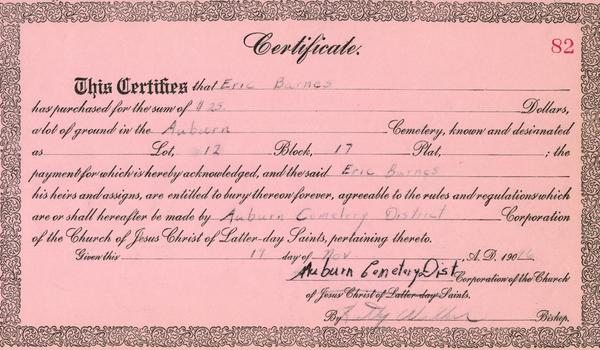 Certificate.
82
This Certifies that Eric Barnes
has purchased for the sum of $25. Dollars,
a lot of ground in the Auburn Cemetery, known and desianated
as Lot, 12 Block, 17 Plat, ; the
payment for which is hereby acknowledged, and the said Eric Barnes
his heirs and assigns, are entitled to bury thereon forever, agreeable to the rules and regulations which
are or shall hereafter be made by Auburn Cemetery District Corporation
of the Church of Jesus Christ of Latter-day Saints, pertaining thereto.
Given this 19 day of Nov , A. D. 190
Auburn Cemetery Dist Corporation of the Church
of Jesus Christ of Latter-day Saints.
By Bishop.